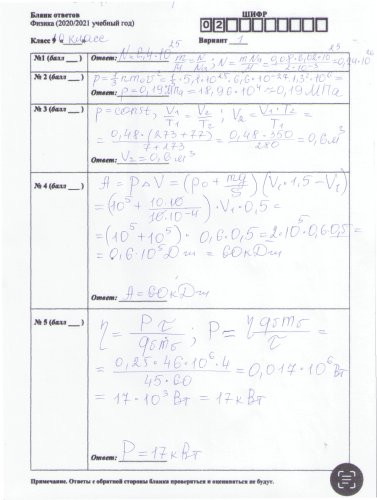 Бланк ответов
Физика (2020/2021 учебный год)
ШИФР
02
Класс 10 классе
Вариант 1
№1 (балл ___ )
Ответ: N = 2,4·10²⁵
№ 2 (балл ___ )
Ответ: p = 0,19 МПа = 18,96·10⁴ ≈ 0,19 МПа
№ 3 (балл ___ )
p = const, V₁/T₁ = V₂/T₂ ; V₂ = V₁·T₂/T₁ =
= 0,48·(273+77)/7+273 = 0,48·350/280 = 0,6 м³
Ответ: V₂ = 0,6 м³
№ 4 (балл ___ )
A = p△V = (p₀ + mg/S)(V₁·1,5 − V₁)
= (10⁵ + 10·10/10·10⁻⁴)·V₁·0,5 =
= (10⁵ + 10⁵)·0,6·0,5 = 2·10⁵·0,6·0,5 =
= 0,6·10⁵ Дж = 60 кДж
Ответ: A = 60 кДж
№ 5 (балл ___ )
= 0,25·46·10⁶·4/45·60 = 0,017·10⁶ Вт
= 17·10³ Вт = 17 кВт
Ответ: P = 17 кВт
Примечание. Ответы с обратной стороны бланка проверяться и оцениваться не будут.